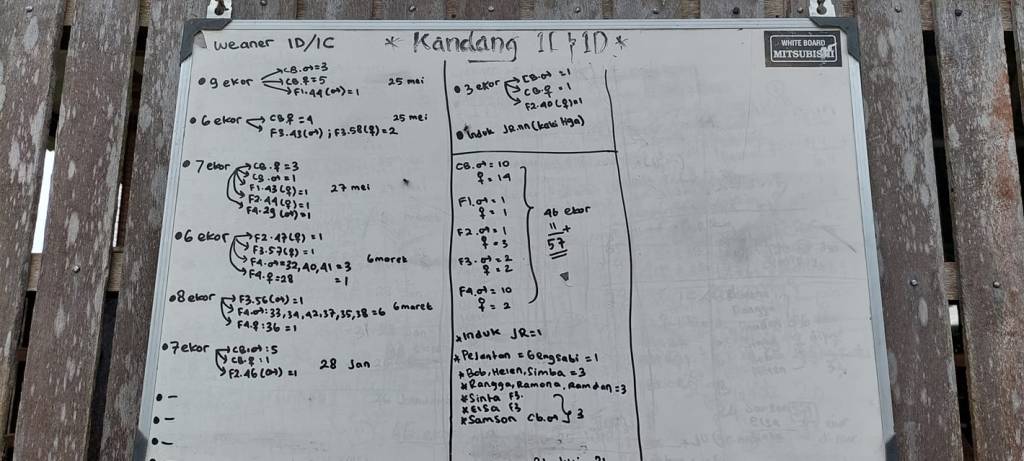 Weaner ID/IC * Kandang IC & ID *
WHITE BOARD
MITSUBISHI
• 9 ekor CB.♂=3
CB.♀=5 25 mei
F1.44(♂)=1
• 6 ekor CB.♀=4 25 mei
F3.43(♂) ; F3.58(♀)=2
• 7 ekor CB.♀=3
CB.♂=1
F1.43(♀)=1 27 mei
F2.44(♀)=1
F4.29(♂)=1
• 6 ekor F2.47(♀)=1
F3.57(♀)=1
F4.♂=32,40,41=3 6 maret
F4.♀=28 =1
• 8 ekor F3.56(♂)=1
F4.♂:33,34,42,37,35,38=6 6 maret
F4.♀:36=1
• 7 ekor CB.♂:5
CB.♀:1 28 Jan
F2.46(♂)=1
• -
• -
• -
• 3 ekor CB.♂=1
CB.♀=1
F2.40(♀)=1
• Induk JR.nn (kaki tiga)
CB.♂=10
♀=14
F1.♂=1
♀=1
F2.♂=1
♀=3
F3.♂=2
♀=2
F4.♂=10
♀=2
46 ekor
11 +
57
* Induk JR=1
* Pejantan = Gengsabi = 1
* Bob, Helen, Simba = 3
* Rangga, Ramona, Ramdan = 3
* Sinta F3.
* Elsa F3
* Samson Cb.♂ 3